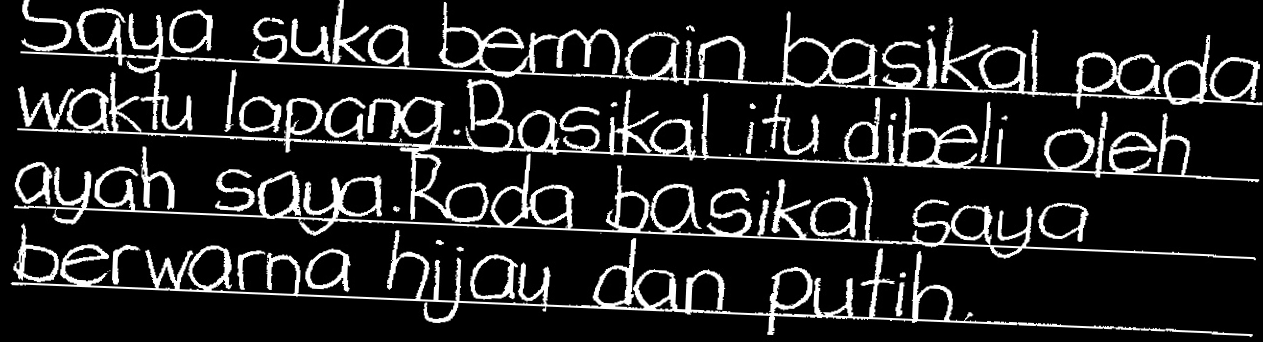 Saya suka bermain basikal pada
waktu lapang. Basikal itu dibeli oleh
ayah saya. Roda basikal saya
berwarna hijau dan putih.